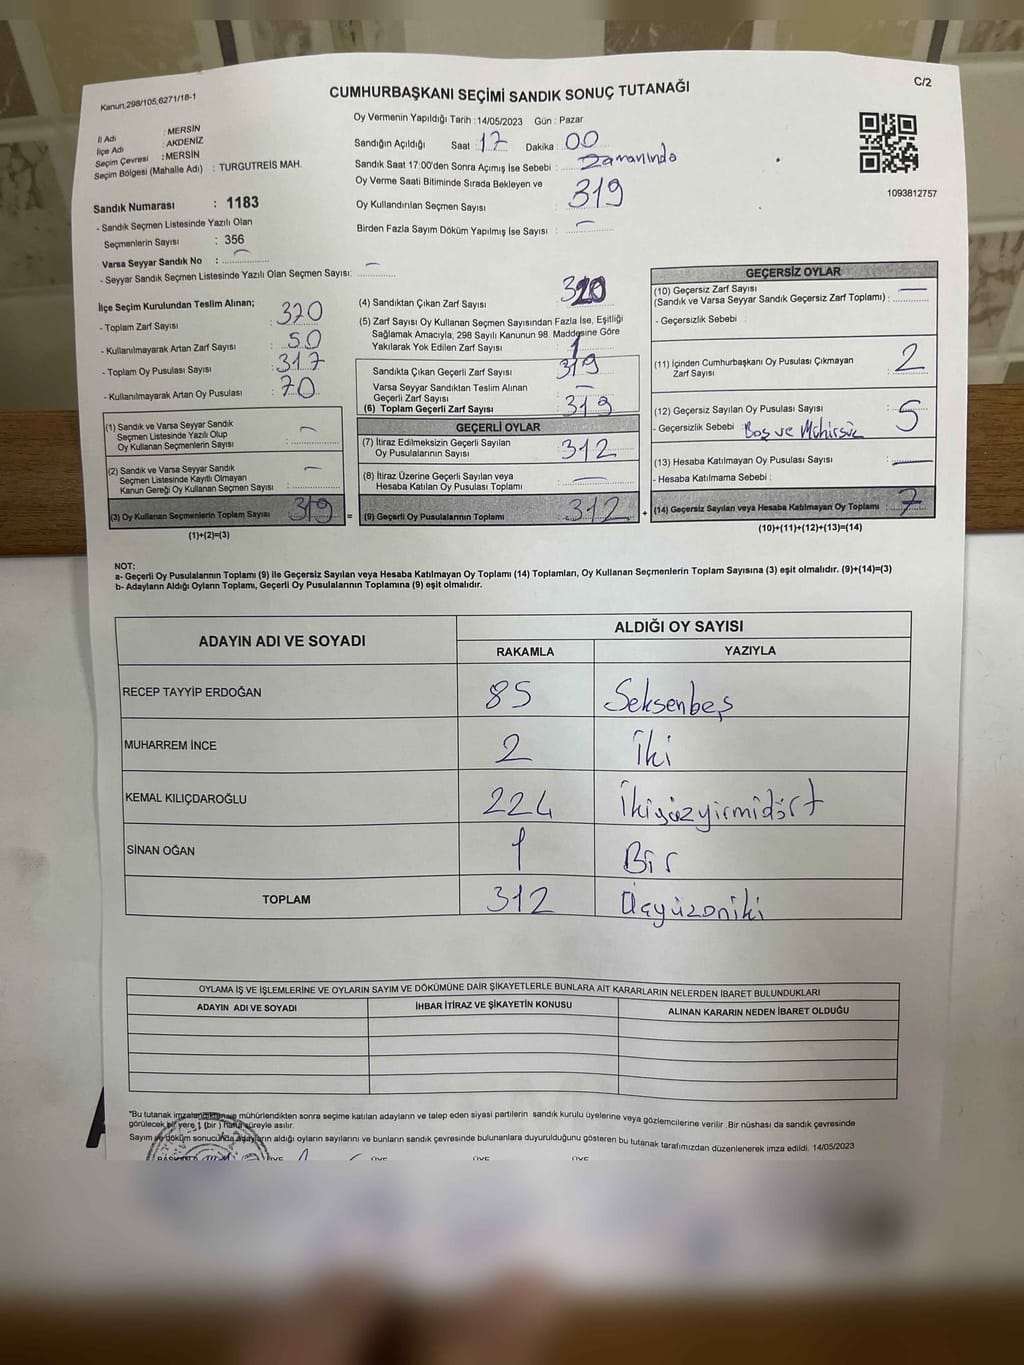 Kanun;298/105,6271/18-1
CUMHURBAŞKANI SEÇİMİ SANDIK SONUÇ TUTANAĞI
C/2
İl Adı : MERSİN
İlçe Adı : AKDENİZ
Seçim Çevresi : MERSİN
Seçim Bölgesi (Mahalle Adı) : TURGUTREİS MAH.
Oy Vermenin Yapıldığı Tarih : 14/05/2023 Gün : Pazar
Sandığın Açıldığı Saat : 17 Dakika : 00
Sandık Saat 17:00'den Sonra Açımış İse Sebebi : Zamanında
Oy Verme Saati Bitiminde Sırada Bekleyen ve
Oy Kullandırılan Seçmen Sayısı : 319
Birden Fazla Sayım Döküm Yapılmış İse Sayısı : –
1093812757
Sandık Numarası : 1183
- Sandık Seçmen Listesinde Yazılı Olan
Seçmenlerin Sayısı : 356
Varsa Seyyar Sandık No : –
- Seyyar Sandık Seçmen Listesinde Yazılı Olan Seçmen Sayısı: –
İlçe Seçim Kurulundan Teslim Alınan;
- Toplam Zarf Sayısı : 370
- Kullanılmayarak Artan Zarf Sayısı : 50
- Toplam Oy Pusulası Sayısı : 317
- Kullanılmayarak Artan Oy Pusulası : 70
(1) Sandık ve Varsa Seyyar Sandık
Seçmen Listesinde Yazılı Olup
Oy Kullanan Seçmenlerin Sayısı : –
(2) Sandık ve Varsa Seyyar Sandık
Seçmen Listesinde Kayıtlı Olmayan
Kanun Gereği Oy Kullanan Seçmen Sayısı : –
(3) Oy Kullanan Seçmenlerin Toplam Sayısı : 319
(1)+(2)=(3)
=
(4) Sandıktan Çıkan Zarf Sayısı : 320
(5) Zarf Sayısı Oy Kullanan Seçmen Sayısından Fazla İse, Eşitliği
Sağlamak Amacıyla, 298 Sayılı Kanunun 98. Maddesine Göre
Yakılarak Yok Edilen Zarf Sayısı : 1
Sandıkta Çıkan Geçerli Zarf Sayısı : 319
Varsa Seyyar Sandıktan Teslim Alınan
Geçerli Zarf Sayısı : –
(6) Toplam Geçerli Zarf Sayısı : 319
GEÇERLİ OYLAR
(7) İtiraz Edilmeksizin Geçerli Sayılan
Oy Pusulalarının Sayısı : 312
(8) İtiraz Üzerine Geçerli Sayılan veya
Hesaba Katılan Oy Pusulası Toplamı : –
(9) Geçerli Oy Pusulalarının Toplamı : 312
+
GEÇERSİZ OYLAR
(10) Geçersiz Zarf Sayısı
(Sandık ve Varsa Seyyar Sandık Geçersiz Zarf Toplamı) : –
- Geçersizlik Sebebi :
(11) İçinden Cumhurbaşkanı Oy Pusulası Çıkmayan
Zarf Sayısı : 2
(12) Geçersiz Sayılan Oy Pusulası Sayısı : 5
- Geçersizlik Sebebi : Boş ve Mühürsüz
(13) Hesaba Katılmayan Oy Pusulası Sayısı : –
- Hesaba Katılmama Sebebi :
(14) Geçersiz Sayılan veya Hesaba Katılmayan Oy Toplamı : 7
(10)+(11)+(12)+(13)=(14)
NOT:
a- Geçerli Oy Pusulalarının Toplamı (9) ile Geçersiz Sayılan veya Hesaba Katılmayan Oy Toplamı (14) Toplamları, Oy Kullanan Seçmenlerin Toplam Sayısına (3) eşit olmalıdır. (9)+(14)=(3)
b- Adayların Aldığı Oyların Toplamı, Geçerli Oy Pusulalarının Toplamına (9) eşit olmalıdır.
ADAYIN ADI VE SOYADI
ALDIĞI OY SAYISI
RAKAMLA YAZIYLA
RECEP TAYYİP ERDOĞAN 85 Seksenbeş
MUHARREM İNCE 2 İki
KEMAL KILIÇDAROĞLU 224 İkiyüzyirmidört
SİNAN OĞAN 1 Bir
TOPLAM 312 Üçyüzoniki
OYLAMA İŞ VE İŞLEMLERİNE VE OYLARIN SAYIM VE DÖKÜMÜNE DAİR ŞİKAYETLERLE BUNLARA AİT KARARLARIN NELERDEN İBARET BULUNDUKLARI
ADAYIN ADI VE SOYADI İHBAR İTİRAZ VE ŞİKAYETİN KONUSU ALINAN KARARIN NEDEN İBARET OLDUĞU
*Bu tutanak imzalandıktan ve mühürlendikten sonra seçime katılan adayların ve talep eden siyasi partilerin sandık kurulu üyelerine veya gözlemcilerine verilir. Bir nüshası da sandık çevresinde
görülecek bir yere 1 (bir) hafta süreyle asılır.
Sayım ve döküm sonucunda adayların aldığı oyların sayılarını ve bunların sandık çevresinde bulunanlara duyurulduğunu gösteren bu tutanak tarafımızdan düzenlenerek imza edildi. 14/05/2023
ÜYE ÜYE ÜYE